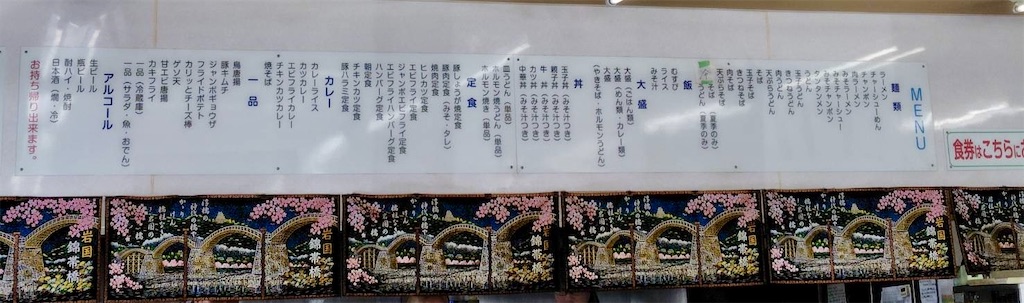 MENU
麺類
ラーメン
チャーシューめん
チャーメン
みそラーメン
みそチャーシュー
みそチャンポン
タンタンメン
うどん
きつねうどん
天ぷらうどん
肉うどん
玉子うどん
そば
玉子そば
きつねそば
天ぷらそば
肉そば
飯
むすび
ライス
みそ汁
大盛
大盛(ごはん類)
大盛(めん類・カレー類)
(やきそば・ホルモンうどん)
丼
玉子丼(みそ汁つき)
親子丼(みそ汁つき)
牛丼(みそ汁つき)
カツ丼(みそ汁つき)
中華丼(みそ汁つき)
皿うどん(単品)
ホルモン焼うどん(単品)
ホルモン焼き(単品)
定食
豚しょうが焼定食
豚肉定食(みそ・タレ)
焼肉定食
ヒレカツ定食
エビフライ定食
ジャンボエビフライ定食
エビフライハンバーグ定食
ハンバーグ定食
朝定食
チキンカツ定食
豚ハラミ定食
カレー
カレーライス
カツカレー
エビフライカレー
チキンカツカレー
焼そば
一品
鳥唐揚
豚キムチ
ジャンボギョウザ
フライドポテト
カリッとチーズ棒
ゲソ天
甘エビ唐揚
カキフライ
一品(冷蔵庫)
一品(サラダ・魚・おでん)
アルコール
生ビール
瓶ビール
酎ハイ・焼酎
日本酒(燗・冷)
お持ち帰り出来ます。
食券はこちらに
岩国
錦帯橋
岩国
錦帯橋
岩国
錦帯橋
岩国
錦帯橋
岩国
錦帯橋